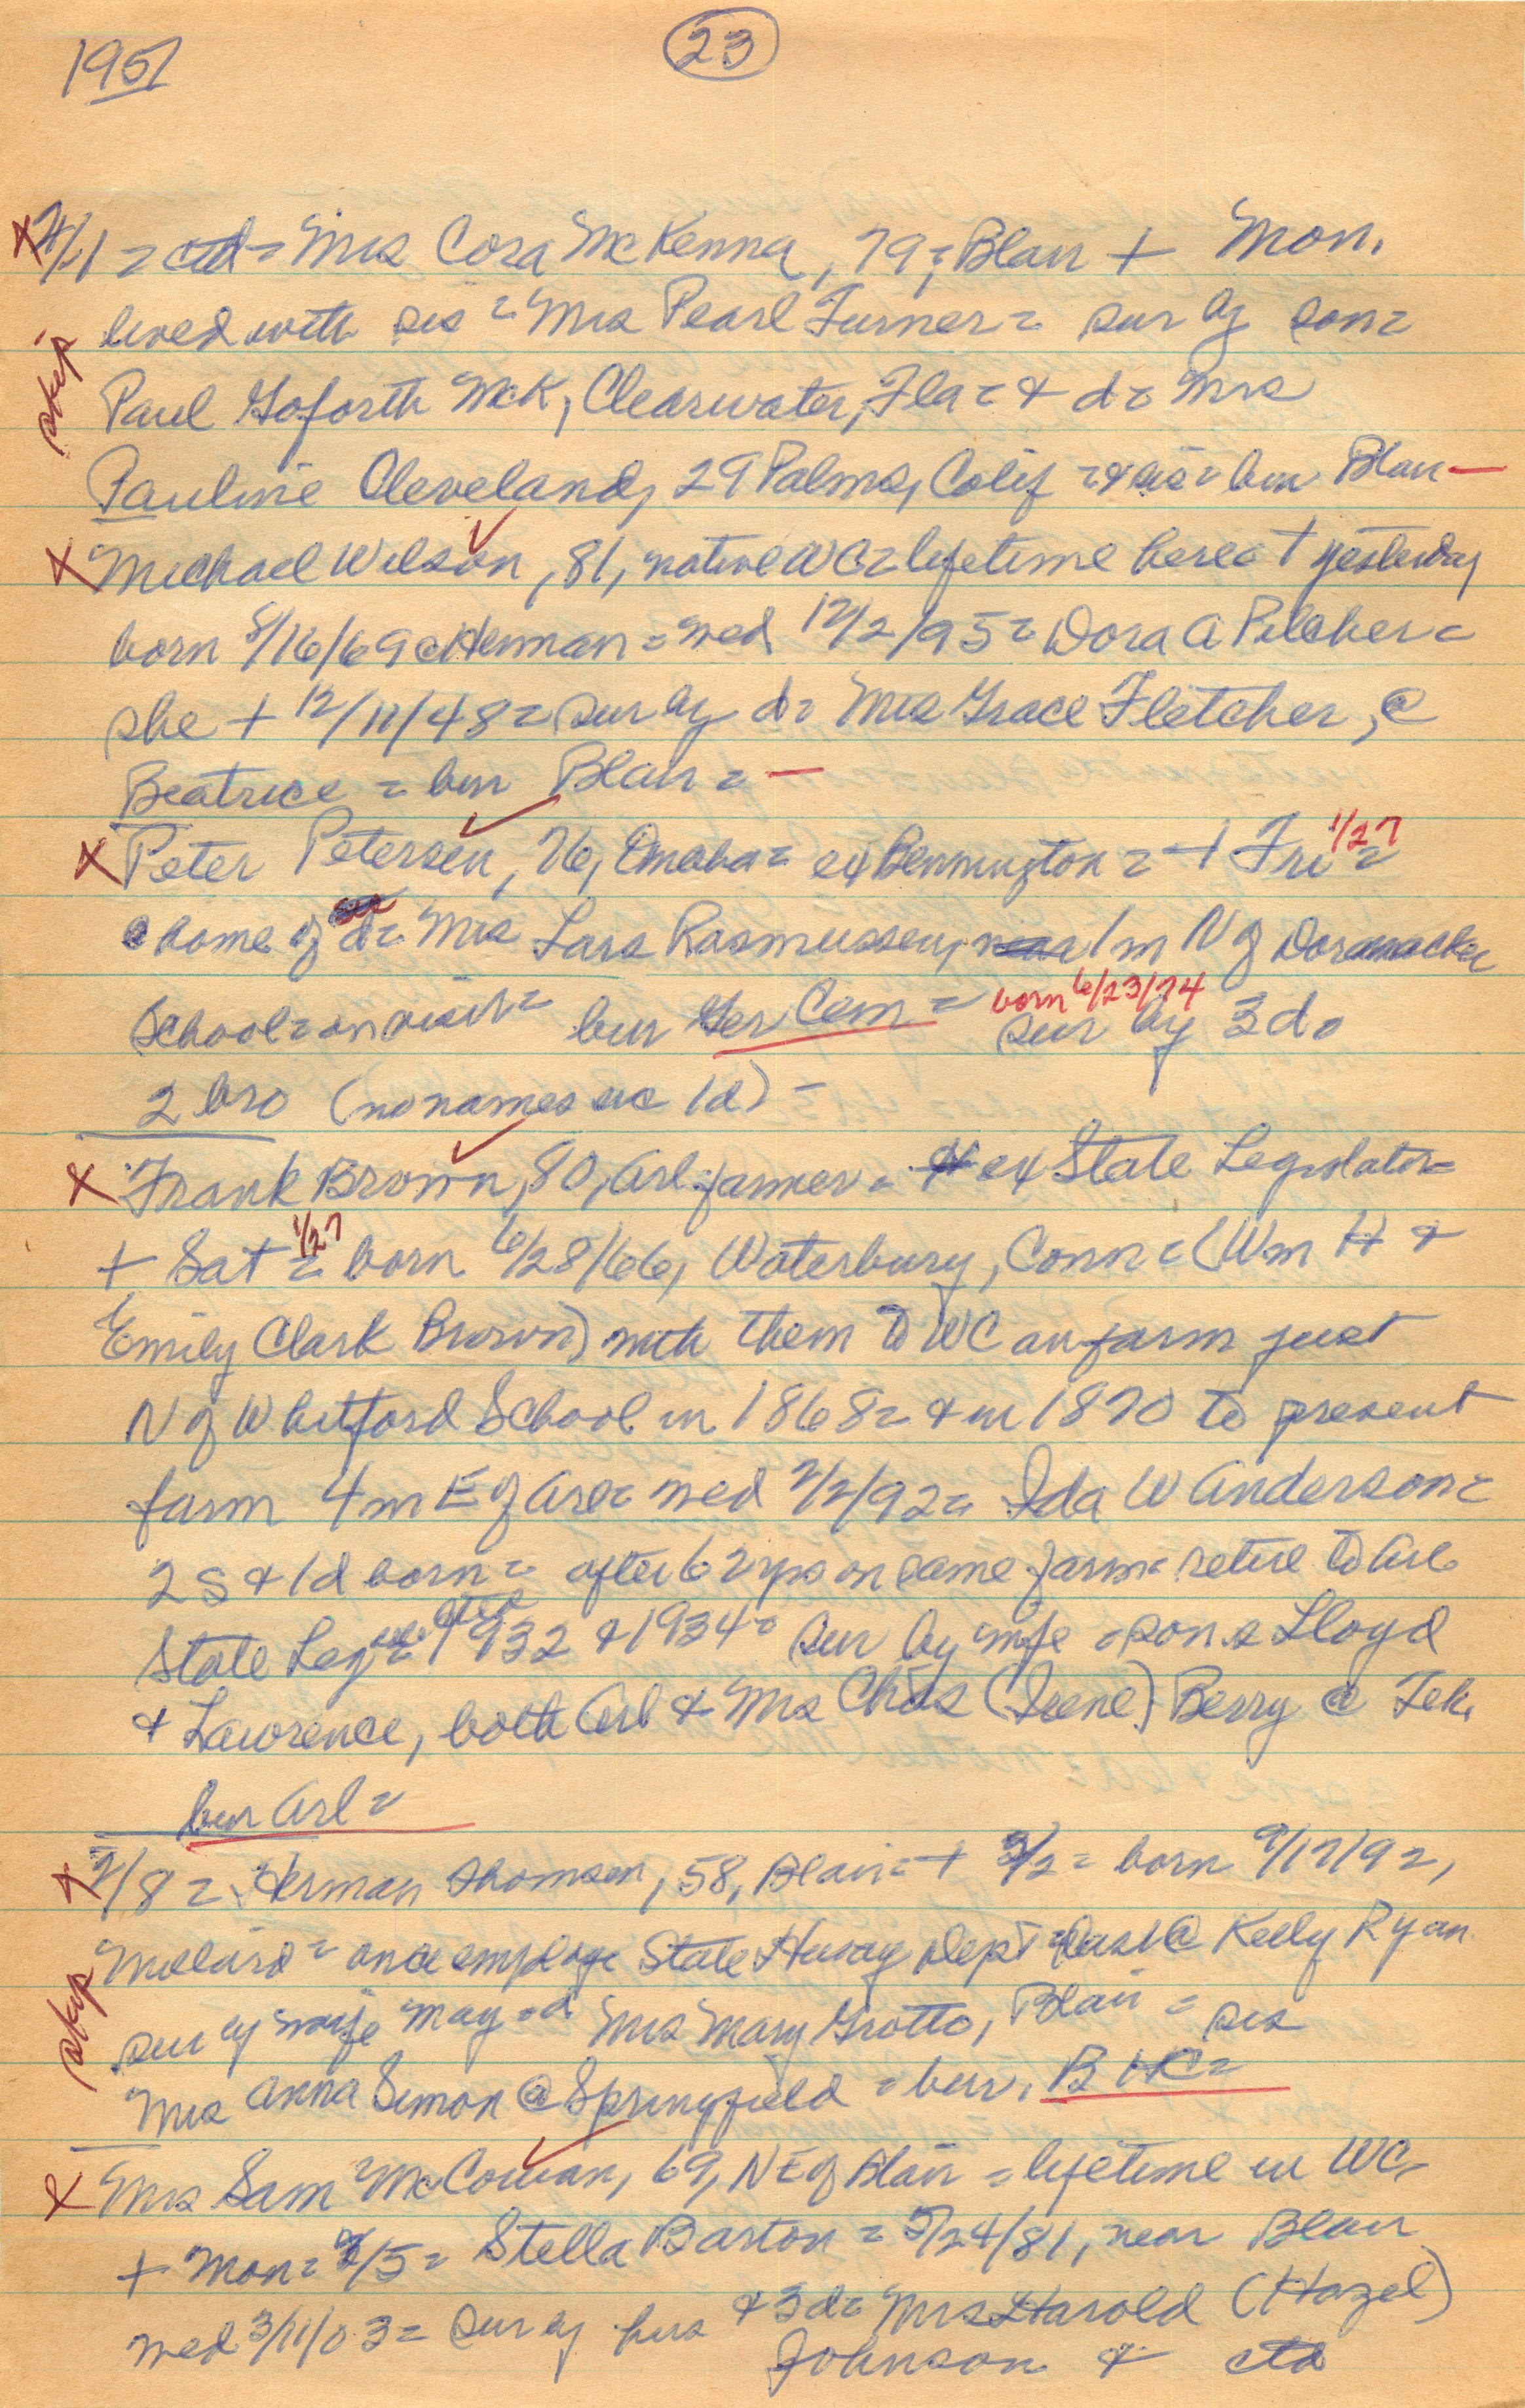 1951
23
2/1 = ctd = Mrs Cora McKenna, 79, = Blair + Mon.
lived with sis = Mrs Pearl Turner = sur by son =
skip
Paul Goforth McK, Clearwater, Fla = & d = Mrs
Pauline Cleveland, 29 Palms, Calif = & sis = bur Blair —
x Michael Wilson, 81, native WC = lifetime here = + yesterday
born 8/16/69 @ Herman = wed 12/2/95 = Dora A Pilcher =
she + 12/11/48 = sur by d = Mrs Grace Fletcher, @
Beatrice = bur Blair = —
x Peter Petersen, 76, Omaha = ex Bennington = + Fri 1/27 =
@ home of d = Mrs Lars Rasmussen, 1 m N of
School = on visit = bur Ger Cem = born 6/23/74 sur by 3 d o
2 bro (no names exc 1 d) –
x Frank Brown, 80, Arl farmer = ex State Legislator =
+ Sat 1/27 = born 6/28/66, Waterbury, Conn = (Wm H &
Emily Clark Brown) with them to WC on farm just
N of Whitford School in 1868 = & in 1870 to present
farm 4 m E of Arl = wed 2/2/92 = Ida W Anderson =
2 s & 1 d born = after 62 yrs on same farm = retire to Arl
State Leg = 1932 & 1934 = sur by wife = sons Lloyd
& Lawrence, both Arl & Mrs Chas (Irene) Berry @ Tek.
bur Arl =
x 2/8 = Herman Thomsen, 58, Blair = + 2/2 = born 9/17/92,
Millard = once employe State Hiway Dept = last @ Kelly Ryan
skip
sur by wife May = d Mrs Mary Grotto, Blair = sis
Mrs Anna Simon @ Springfield = bur. B HC =
x Mrs Sam McCowan, 69, NE of Blair = lifetime in WC =
+ Mon = 2/5 = Stella Barton = 5/24/81, near Blair
wed 3/11/03 = sur by hus & 3 d = Mrs Harold (Hazel)
Johnson & ctd